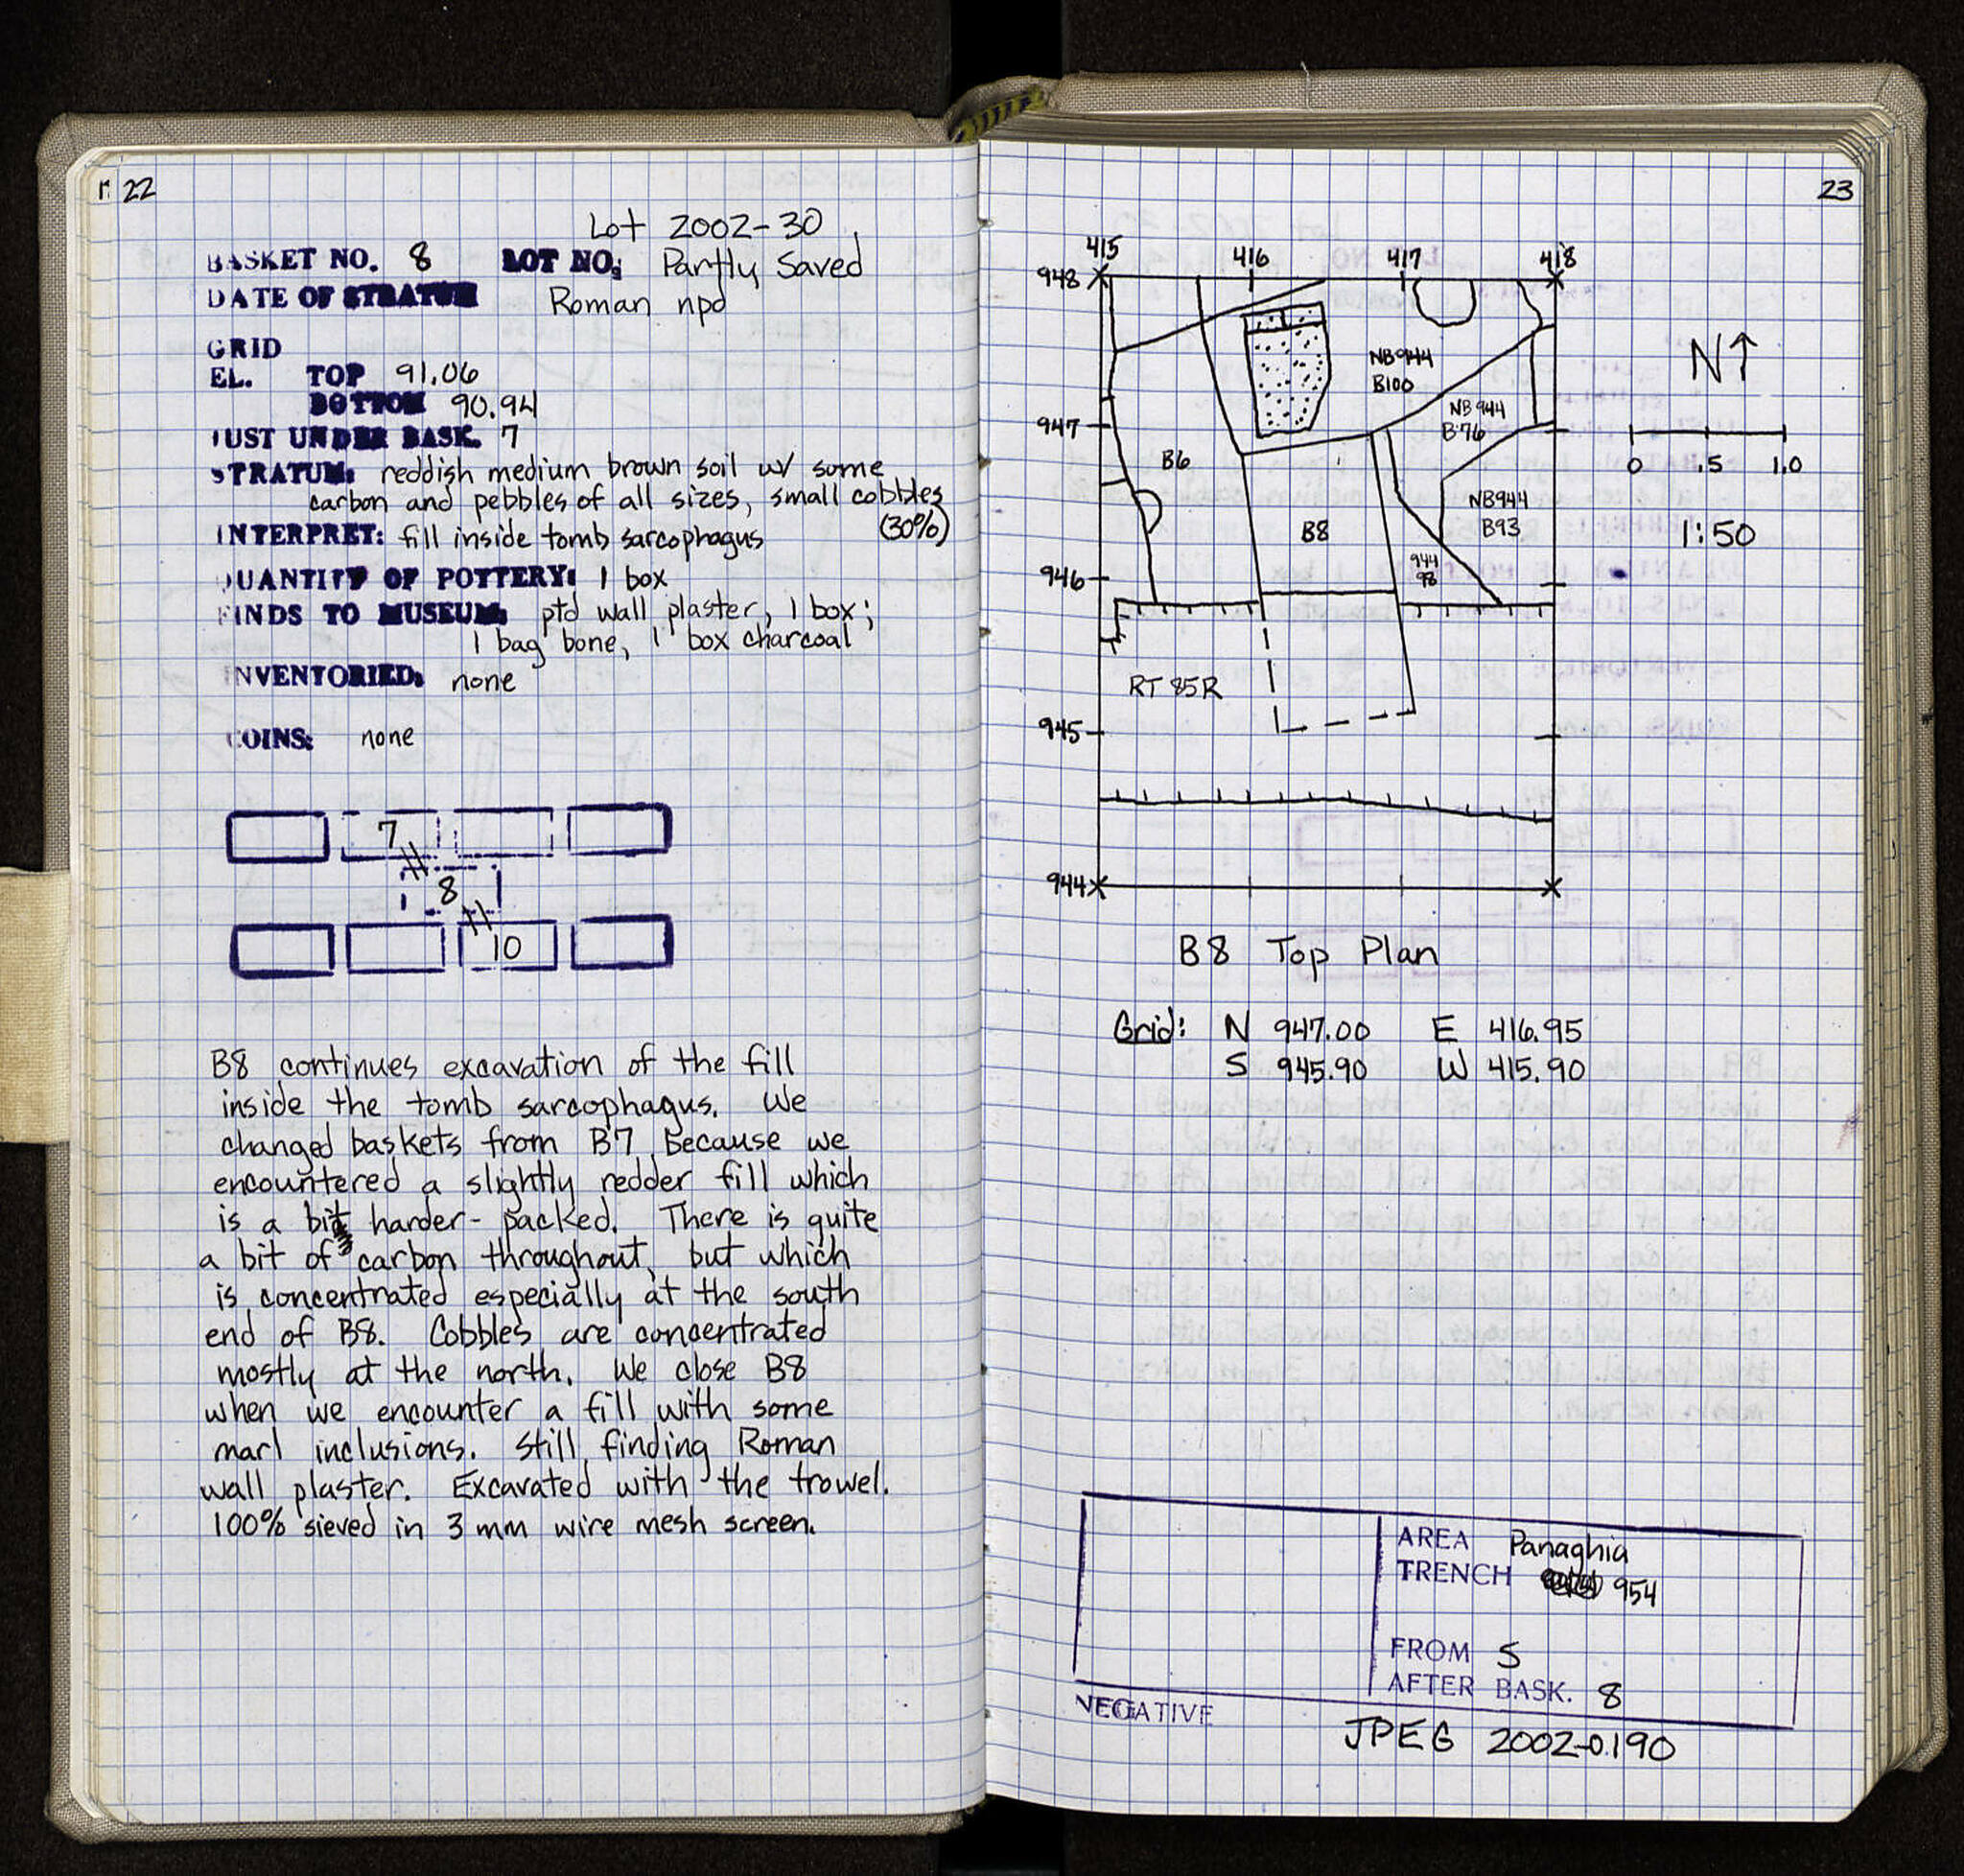 22
Lot 2002-30
BASKET NO. 8 LOT NO: Partly Saved
DATE OF STRATUM Roman npd
GRID
EL. TOP 91.06
BOTTOM 90.94
JUST UNDER BASK. 7
STRATUM: reddish medium brown soil w/ some
carbon and pebbles of all sizes, small cobbles
(30%)
INTERPRET: fill inside tomb sarcophagus
QUANTITY OF POTTERY: 1 box
FINDS TO MUSEUM: ptd wall plaster, 1 box;
1 bag bone, 1 box charcoal
INVENTORIED: none
COINS: none
7
8
10
B8 continues excavation of the fill
inside the tomb sarcophagus. We
changed baskets from B7 because we
encountered a slightly redder fill which
is a bit harder-packed. There is quite
a bit of carbon throughout, but which
is concentrated especially at the south
end of B8. Cobbles are concentrated
mostly at the north. We close B8
when we encounter a fill with some
marl inclusions. Still finding Roman
wall plaster. Excavated with the trowel.
100% sieved in 3 mm wire mesh screen.
23
415 416 417 418
948
NB944
B100
N↑
947
NB944
B76
B6
0 .5 1.0
NB944
B93
B8
1:50
944
98
946
RT 85R
945
944
B8 Top Plan
Grid: N 947.00 E 416.95
S 945.90 W 415.90
AREA Panaghia
TRENCH 954
FROM S
AFTER BASK. 8
NEGATIVE
JPEG 2002-0190